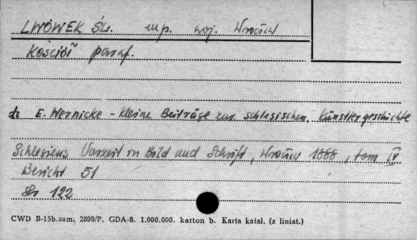 LWÓWEK ŚL. mp. woj. Wrocław
Kościół paraf.
do E. Wernicke - Kleine Beiträge zur schlesischen Künstlergeschichte
Schlesiens Vorzeit in Bild und Schrift, Wrocław 1888, tom IV
Bericht 51
Str 122
CWD B-15b.zam. 2899/P. GDA-8. 1.000.000. karton b. Karta katal. (z liniat.)